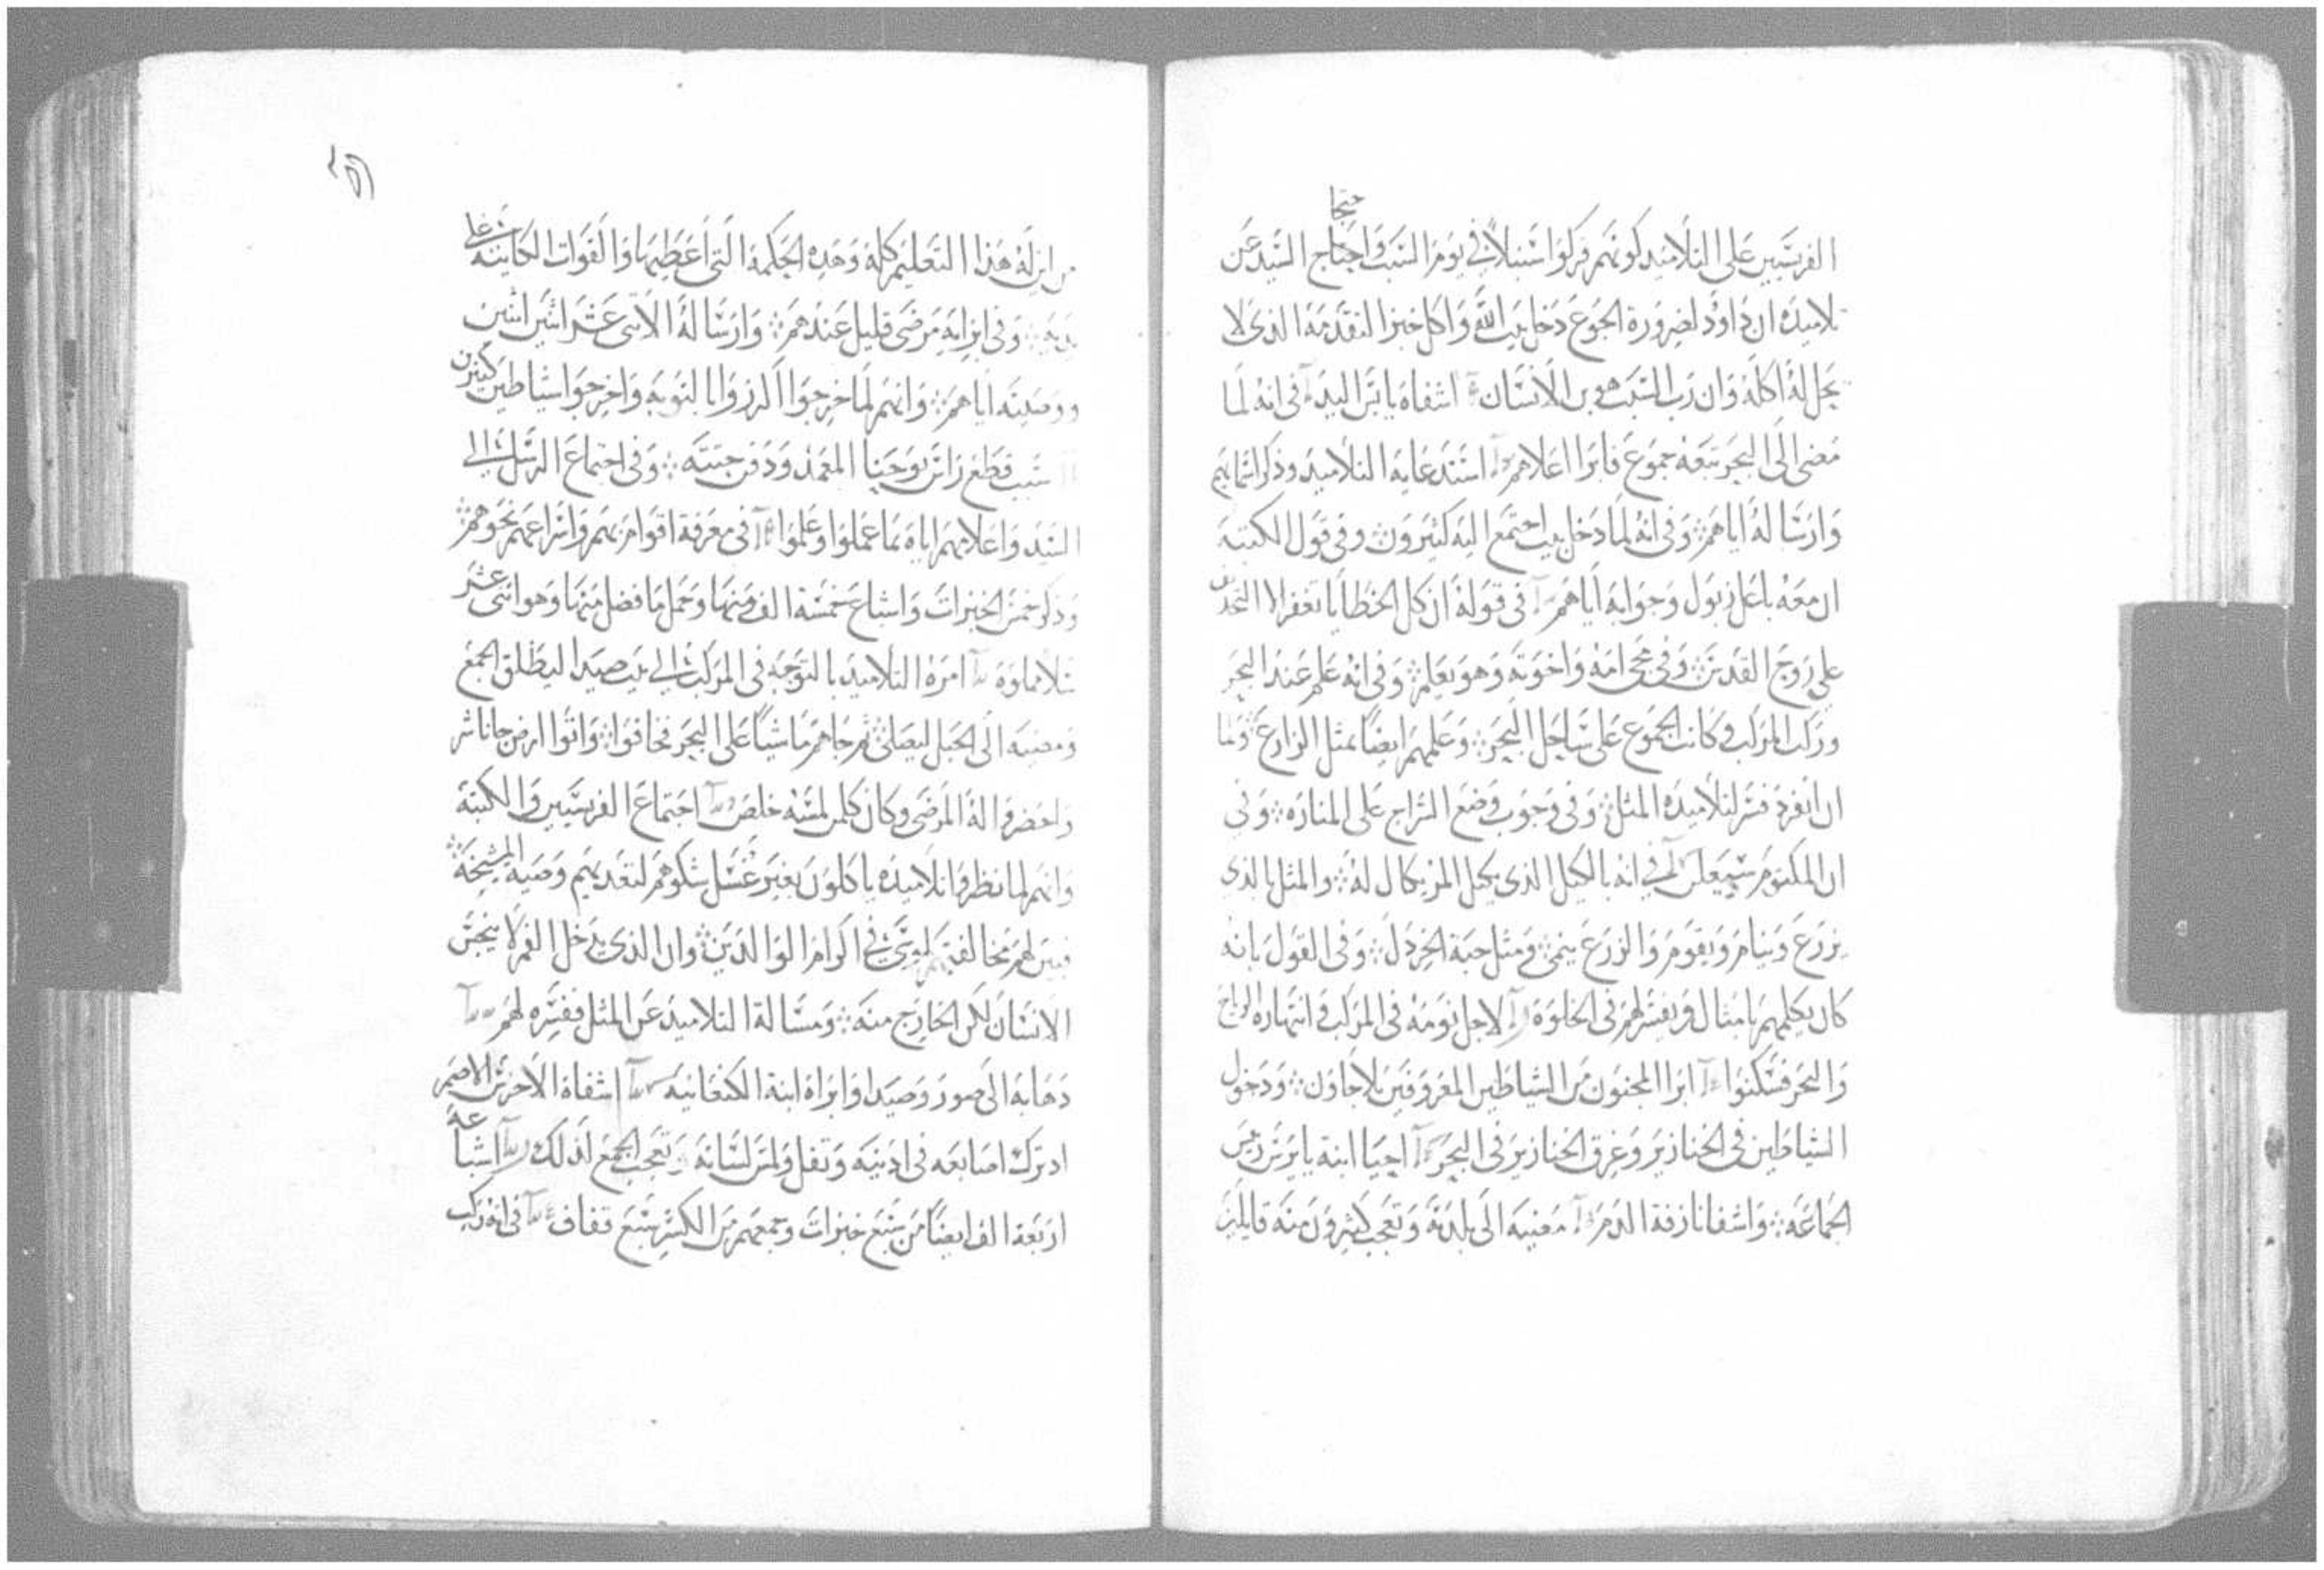 الفريسيين على التلاميد كونهم فركوا سنبلاً في يوم السبت واحتجاج السيد عن
تلاميده ان داوود لضرورة الجوع دخل بيت الله واكل خبز التقدمه الذي لا
يحل له اكله وان رب السبت هو بن الانسان اشفاه يابس اليد في انه لما
مضى الى البحر تبعه جموع فابرا اعلاهم استدعايه التلاميد وذكر اسمايهم
وارساله اياهم وفي انه لما دخل بيت اجتمع اليه كثيرون وفي قول الكتبه
ان معه باعلزبول وجوابه اياهم في قوله ان كل الخطايا تغفر الا التجديف
على روح القدس وفي مجي امه واخوته وهو يعلم وفي انه علم عند البحر
وركب المركب وكانت الجموع على ساحل البحر وعلمهم ايضاً بمثل الزارع ولما
ان انفرد فسر لتلاميده المثل وفي وجوب وضع السراج على المناره وفي
ان المكتوم سيعلن في انه بالكيل الذي يكيل المر يكال له والمثل بالذي
يزرع وينام ويقوم والزرع ينمي ومثل حبة الخردل وفي القول بانه
كان يكلمهم بامثال ويفسر لهم في الخلوة لاجل نومه في المركب وانتهاره الرياح
والبحر فسكنوا ابرا المجنون من الشياطين المعروفين بلاجاون ودخول
الشياطين في الخنازير وغرق الخنازير في البحر احيا ابنة يايرس ريس
الجماعه واشفا نازفة الدم مضيه الى بلدته وتعجب كثيرون منه قايلين
من اين له هذا التعليم كله وهده الحكمة التي اعطيها والقوات الكاينه على
يديه وفي ابرايه مرضى قليل عندهم وارساله الاثنى عشر اثنين اثنين
ووصيته اياهم وانهم لما خرجوا اكرزوا بالتوبه واخرجوا شياطين كثيرين
سبب قطع راس يوحنا المعمد ودفن جتته وفي اجتماع الرسل الى
السيد واعلامهم اياه بما عملوا وعلموا في معرفة اقوام بهم واسراعهم نحوهم
وذكر خمس الخبزات واشباع خمسة الف منها وحمل ما فضل منها وهو اثنى عشر
سلا مملوة امره التلاميد بالتوجه في المركب الى بيت صيدا ليطلق الجمع
ومضيه الى الجبل ليصلى ثم جاهم ماشياً على البحر فخافوا واتوا ارض جاناشر
واحضروا له المرضى وكان كلمن لمسه خلص اجتماع الفريسيين والكتبة
وانهم لما نظروا تلاميده ياكلون بغير غسل شكوهم لتعديهم وصية المشيخة
فبين لهم مخالفتهم لموسى في اكرام الوالدين وان الذي يدخل الفم لا ينجس
الانسان لكن الخارج منه ومسالة التلاميد عن المثل ففسره لهم
دهابه الى صور وصيدا وابراه ابنة الكنعانيه اشفاه الاخرس الاصم
ادترك اصابعه في ادنيه وتفل ولمس لسانه وتعجب الجمع لذلك اشباعه
اربعة الف ايضاً من سبع خبزات وجمعهم من الكسر سبع قفاف في انه ركب